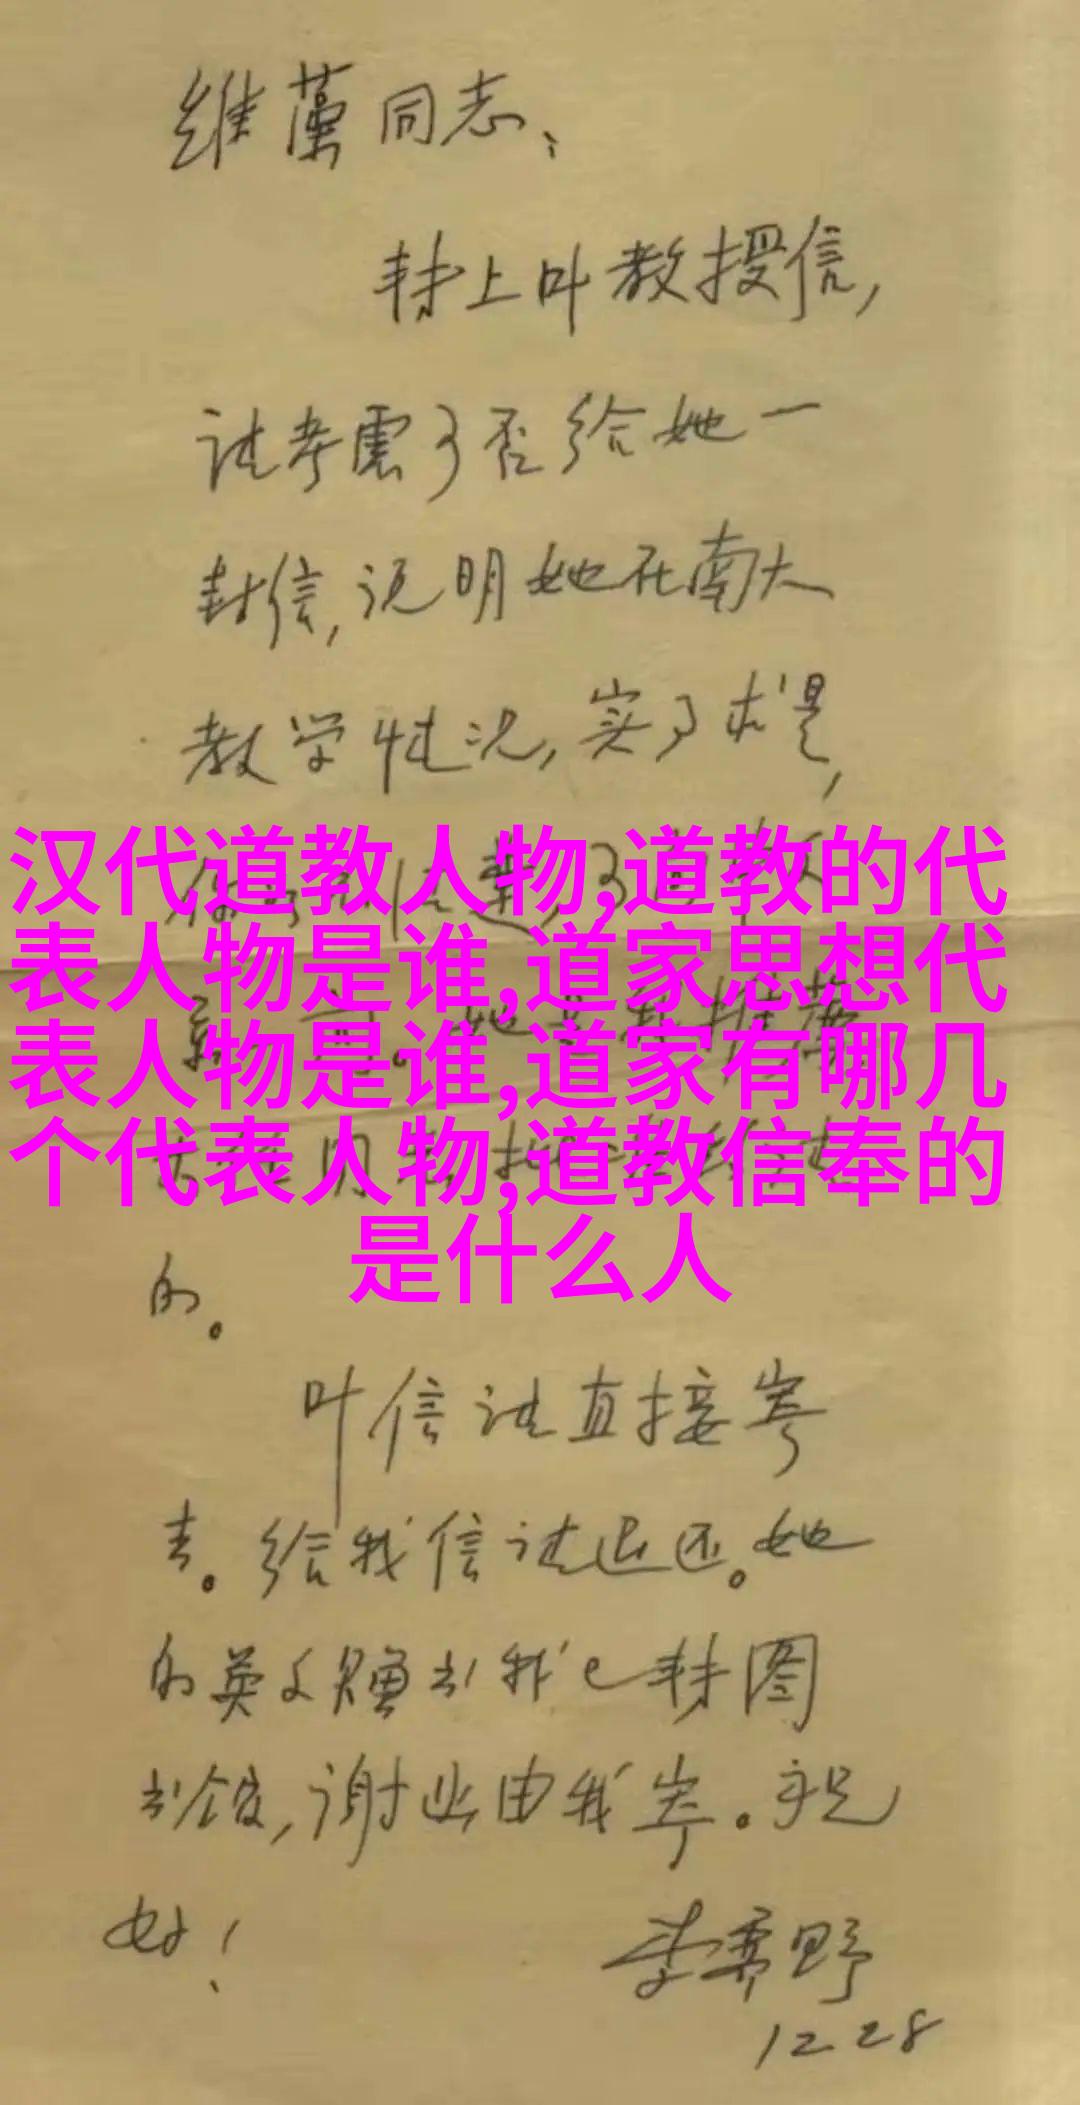 维藻同志：
转上叶教授信，
请考虑可否给她一
封信，说明她在南大
教学情况，实事求是，
汉代道教人物,道教的代
表人物是谁,道家思想代
表人物是谁,道家有哪几
个代表人物,道教信奉的
是什么人
的。
叶信请直接寄
去。给我信请退还。她
的英文赠书我已转图
书馆，谢也由我寄。祝
好！
李霁野
12 28